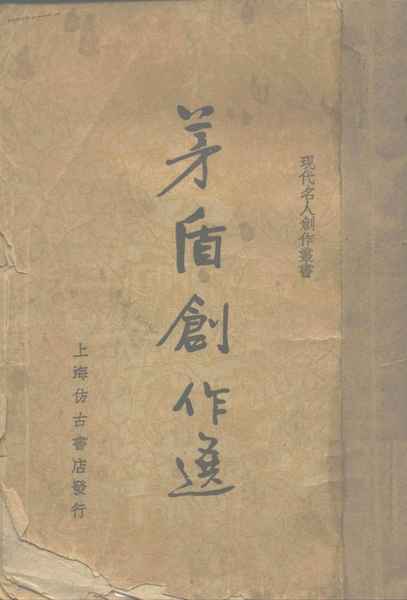 現代名人創作叢書
茅盾創作選
上海仿古書店發行